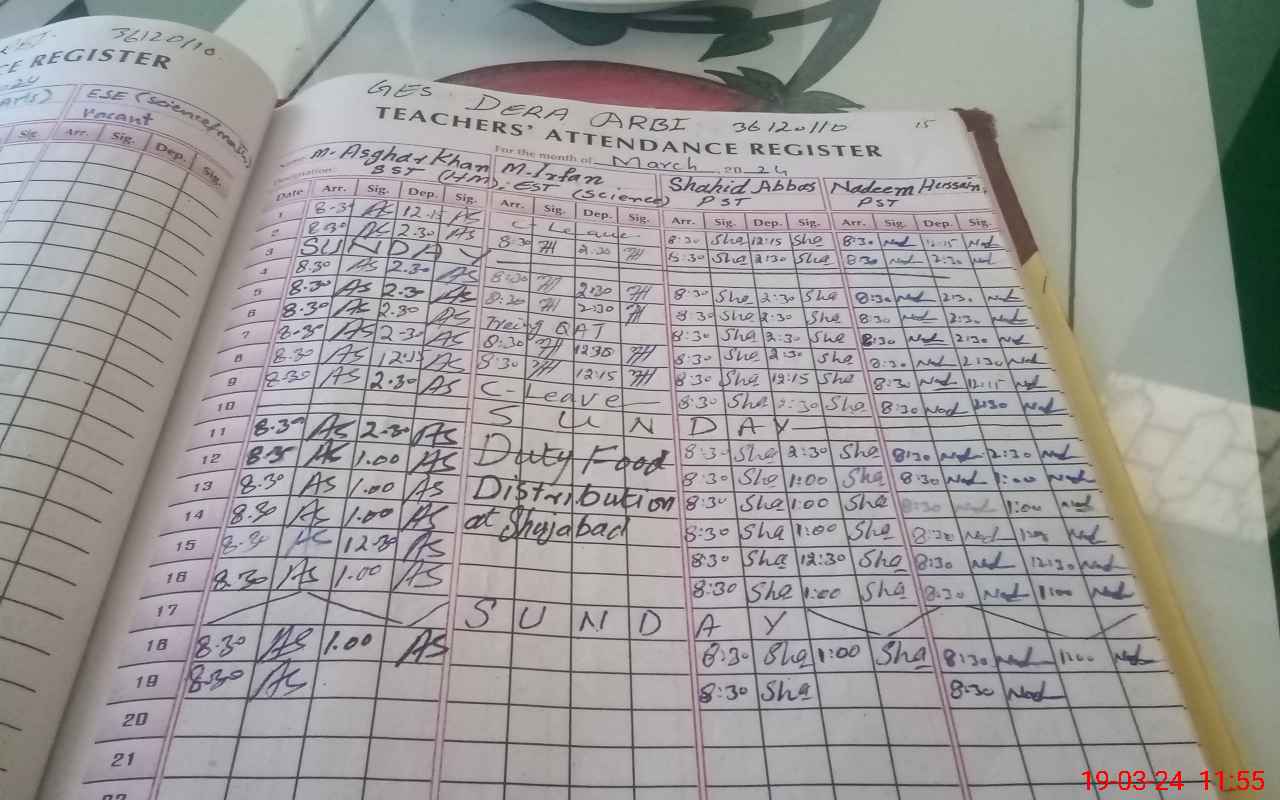 36120110
CE REGISTER
ESE (Science/math)
Vacant
Sig. Arr. Sig. Dep. Sig.
GES DERA ARBI 36120110 15
TEACHERS' ATTENDANCE REGISTER
For the month of March 2024
M. Asghar Khan M. Irfan Shahid Abbas Nadeem Hussain
Designation: SST (Hm) EST (Science) PST PST
Date Arr. Sig. Dep. Sig. Arr. Sig. Dep. Sig. Arr. Sig. Dep. Sig. Arr. Sig. Dep. Sig.
1 8.30 AS 12.15 AS C-Leave 8:30 Sha 12:15 Sha 8:30 Nad 12:15 Nad
2 8.30 AS 2.30 AS 8:30 2:30 8:30 Sha 2:30 Sha 8:30 Nad 2:30 Nad
3 SUNDAY
4 8.30 AS 2.30 AS 8:30 2:30 8:30 Sha 2:30 Sha 8:30 Nad 2:30 Nad
5 8.30 AS 2.30 AS 8:30 2:30 8:30 Sha 2:30 Sha 8:30 Nad 2:30 Nad
6 8.30 AS 2.30 AS QAT 8:30 Sha 2:30 Sha 8:30 Nad 2:30 Nad
7 8.30 AS 2.30 AS 8:30 12:30 8:30 Sha 2:30 Sha 8:30 Nad 2:30 Nad
8 8.30 AS 12.15 AS 8:30 12:15 8:30 Sha 12:15 Sha 8:30 Nad 12:15 Nad
9 8.30 AS 2.30 AS C-Leave 8:30 Sha 2:30 Sha 8:30 Nad 2:30 Nad
10 SUNDAY
11 8.30 AS 2.30 AS Duty Food 8:30 Sha 2:30 Sha 8:30 Nad 2:30 Nad
12 8.30 AS 1.00 AS Distribution 8:30 Sha 1:00 Sha 8:30 Nad 1:00 Nad
13 8.30 AS 1.00 AS at Shujabad 8:30 Sha 1:00 Sha 8:30 Nad 1:00 Nad
14 8.30 AS 1.00 AS 8:30 Sha 1:00 Sha 8:30 Nad 1:00 Nad
15 8.30 AS 12.30 AS 8:30 Sha 12:30 Sha 8:30 Nad 12:30 Nad
16 8.30 AS 1.00 AS 8:30 Sha 1:00 Sha 8:30 Nad 1:00 Nad
17 SUNDAY
18 8.30 AS 1.00 AS 8:30 Sha 1:00 Sha 8:30 Nad 1:00 Nad
19 8.30 AS 8:30 Sha 8:30 Nad
20
21
22
19-03-24 11:55